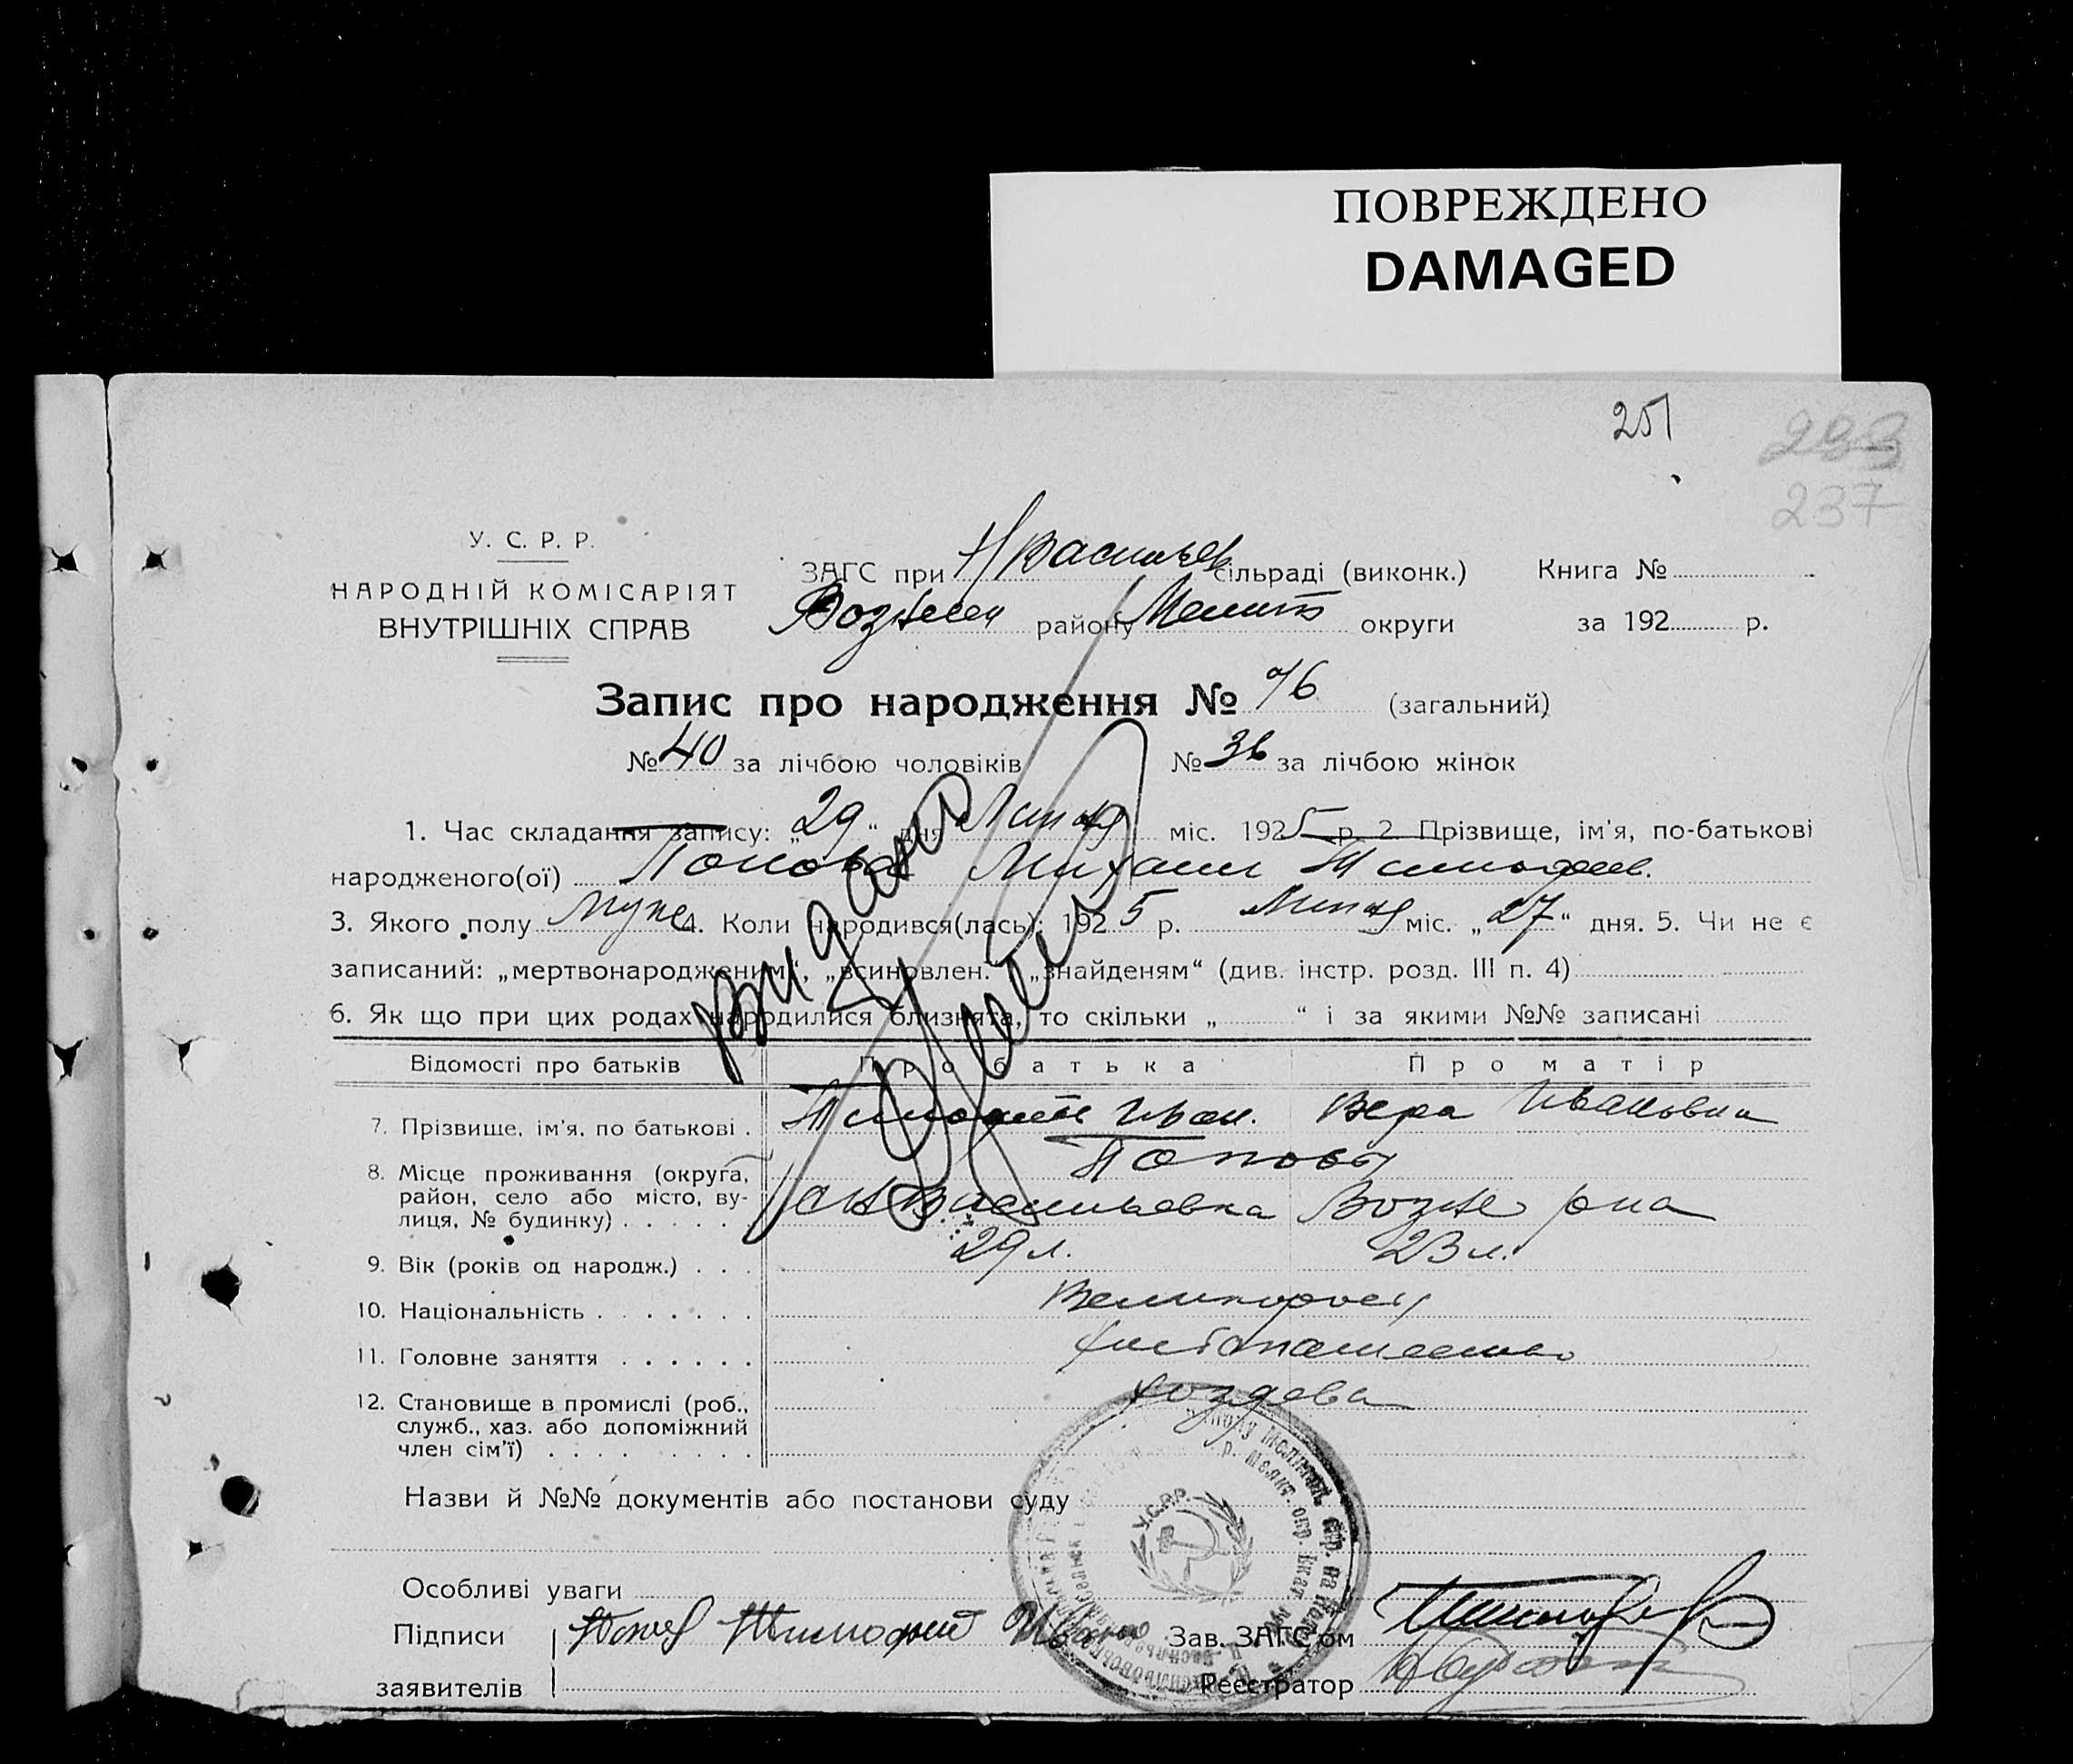 ПОВРЕЖДЕНО
DAMAGED
251
233
237
У. С. Р. Р.
НАРОДНІЙ КОМІСАРІЯТ
ВНУТРІШНІХ СПРАВ
ЗАГС при Н Васильев сільраді (виконк.) Книга №
Вознесен району Мелит округи за 192 р.
Запис про народження № 76 (загальний)
№ 40 за лічбою чоловіків № 36 за лічбою жінок
1. Час складання запису: „29“ дня Липня міс. 1925 р. 2. Прізвище, ім'я, по-батькові
народженого(ої) Попова Михаил Тимофеев.
3. Якого полу Муже 4. Коли народився(лась): 1925 р. Липня міс. „27“ дня. 5. Чи не є
записаний: „мертвонародженим“, „всиновлен.“ „знайденям“ (див. інстр. розд. III п. 4)
6. Як що при цих родах народилися близнята, то скільки „ “ і за якими №№ записані
Відомості про батьків Про батька Про матір
7. Прізвище, ім'я, по батькові . Тимофей Иван. Вера Ивановна
Поповы
8. Місце проживання (округа,
район, село або місто, ву-
лиця, № будинку) . . . . . Васильевка Возне рна
9. Вік (років од народж.) . . . 29 л. 23 л.
10. Національність . . . . . . . Великоросы
11. Головне заняття . . . . . . хлебопашество
12. Становище в промислі (роб.,
служб., хаз. або допоміжний
член сім'ї) . . . . . . . .
Назви й №№ документів або постанови суду
У.С.Р.Р.
Особливі уваги
Підписи Попов Тимофей Иван
Зав. ЗАГС'ом
заявителів
Реєстратор